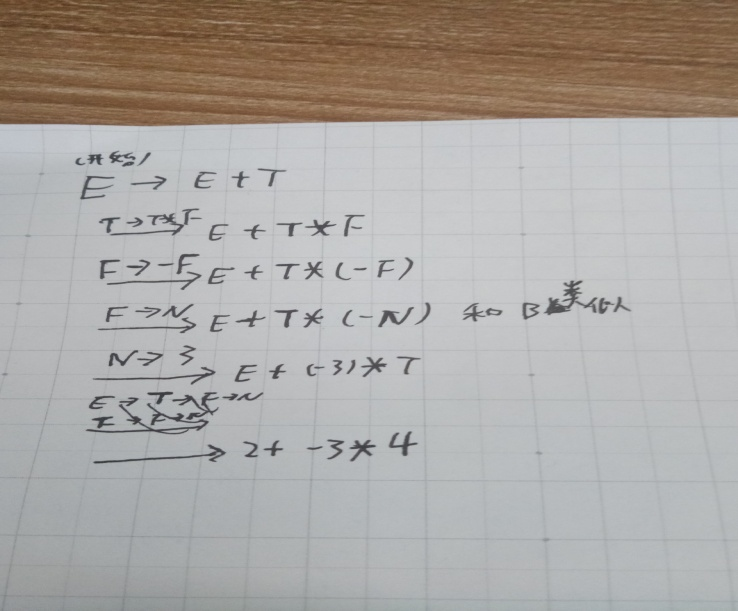 (开始)
E → E + T
T → T * F E + T * F
F → -F E + T * (-F)
F → N E + T * (-N) 和 B 类似
N → 3 E + (-3) * T
E → T → F → N
T → F → N
→ 2 + -3 * 4